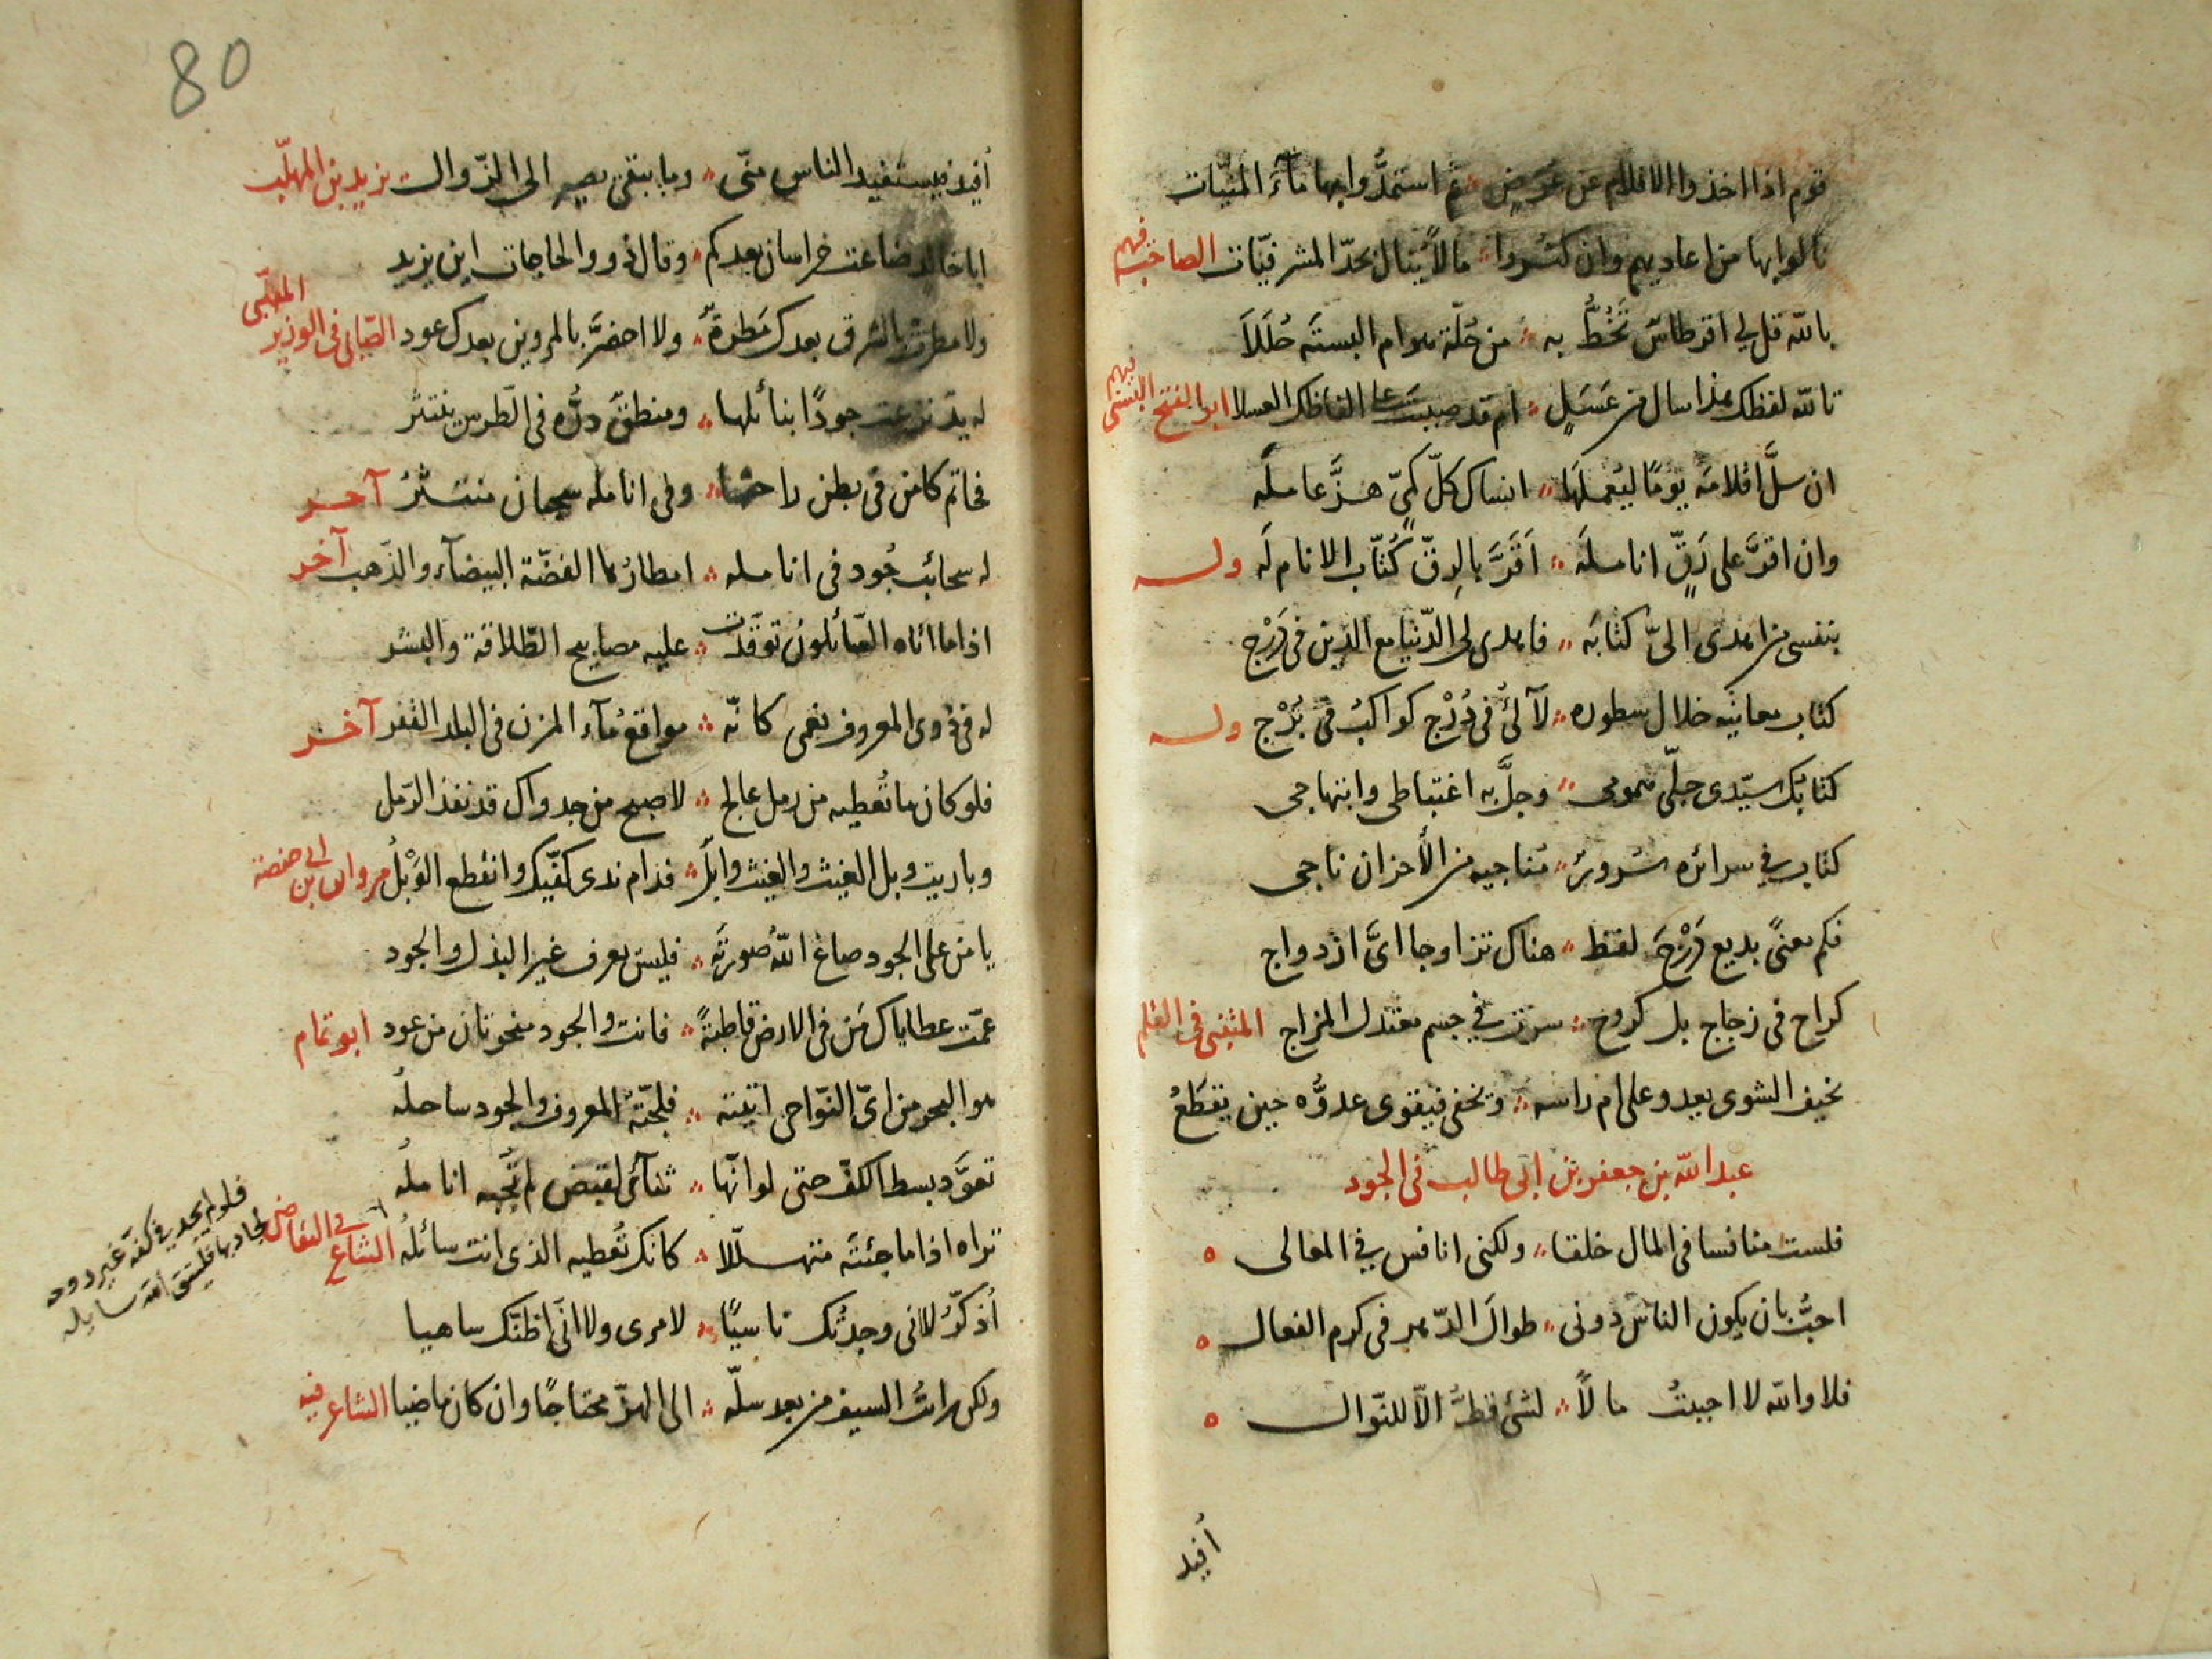 قوم اذا اخذوا الاقلام عن غرض ثم استمدّوا بها مآءَ المنيّات
نالوا بها من اعاديهم وان كثروا ما لا يُنال بحدّ المشرفيّات الصاحب فيهم
بالله قل لي اقرطاسٌ تَخُطُّ به من حُلّة هو ام البستَه حُلَلَا
تالله لفظك هذا سال من عَسَلٍ ام قد صببتَ على الفاظك العسلا ابو الفتح البستى فيهم
ان سلَّ اقلامَه يومًا ليُعملَها انساك كلّ كميّ هزَّ عامله
وان اقرَّ على رَقٍّ انامله اَقَرَّ بالرِقّ كُتّاب الانام لَه وله
بنفسى من اهدى الىّ كتابَه فاهدى لى الدّنيا مع الدّين فى دَرْج
كتاب معانيه خلال سطوره لآلئُ فى دُرْج كواكبُ فى بُرْج وله
كتابك سيّدى جلّى همومى وجلَّ به اغتباطى وابتهاجى
كتاب في سرائره سُرورٌ مُناجيه من الأحزان ناجى
فكم معنًى بديع دَرْجَ لفظ هناك تزاوجا اىَّ ازدواج
كراح فى زجاج بل كروح سرت في جسم معتدل المزاج المتنبى فى القلم
نحيف الشوى يعدو على ام راسه ويحفى فيقوى عدوُه حين يقطَعُ
عبد الله بن جعفر بن ابى طالب فى الجود
فلست منافسا فى المال خلقا ولكنى انافس في المعالى
احبُّ بان يكون الناس دونى طوالَ الدّهر فى كرم الفعال
فلا والله لا احببتُ مالًا لشئ قطُّ الّا للنّوال
أفيد
80
أفيد فيستفيد الناس منّى وما يبقى يصير الى الزّوال يزيد بن المهلّب
ابا خالد ضاعت خراسان بعدكم وقال ذوو الحاجات اين يزيد
ولا مطرت بالشرق بعدك مَطرةٌ ولا اخضرّ بالمروين بعدك عود الصّابى فى الوزير المهلّبى
له يدٌ برعت جودًا بنائلها ومنطقٌ درُّه فى الطّرس ينتثر
فحاتم كامن فى بطن راحتها وفى انامله سحبان منتثرُ آخر
له سحائب جُود فى انامله امطارُها الفضّة البيضآء والذّهب آخر
اذا ما اتاه السّائلون توقّدت عليه مصابيح الطّلاقة والبشر
له فى ذوى المعروف نعمى كانّه مواقعُ مآء المزن فى البلد القفر آخر
فلو كان ما تُعطيه من رمل عالج لاصبح من جدواك قد نفذ الرّمل
وباريت وبل الغيث والغيث وابلٌ فدام ندى كفّيك وانقطع الوَبْلُ مروان بن ابى حفصة
يا من على الجود صاغ اللهُ صورتَه فليس يعرف غير البذل والجود
عمّت عطاياك مَن فى الارض قاطبةً فانت والجود منحوتان من عود ابو تمام
هو البحر من اىّ النّواحى اتيته فلجّتُه المعروف والجود ساحلُه
تعوَّد بسط الكفّ حتى لو انّها ثنآئى لقبض لم تُجبه انامله
تراه اذا ما جئتَه متهلّلا كانك تُعطيه الذى انت سائله الشاعر في التقاضى
فلو لم يجد في كفه غير روحه
لجاد بها فليتق الله سايله
أذكّرُ لا انى وجدتُك ناسيًا لامرى ولا انّى اظنّك ساهيا
ولكن رايتُ السيف من بعد سلّه الى الهزّ محتاجًا وان كان ماضيا الشاعر فيه